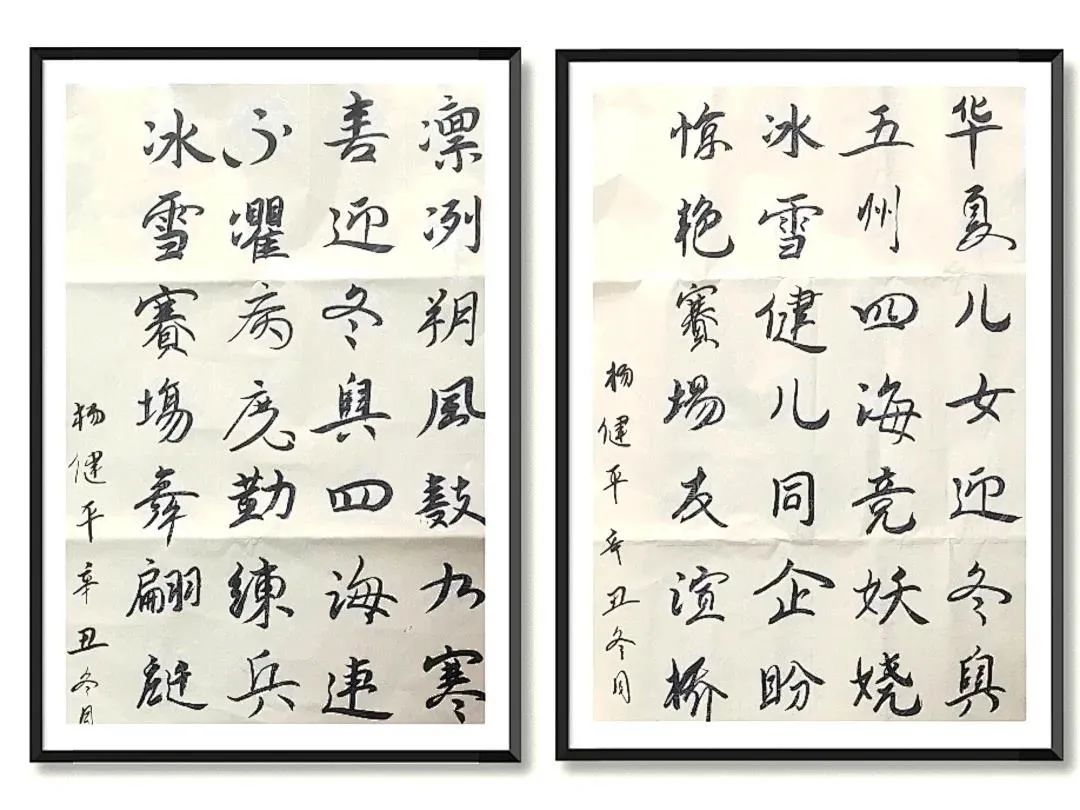 华夏儿女迎冬奥
五州四海竞妖娆
冰雪健儿同企盼
惊艳賽場友谊桥
杨健平辛丑冬月
凛冽朔風数九寒
喜迎冬奥四海連
不懼病疫勤練兵
冰雪賽場舞翩跹
杨健平辛丑冬月